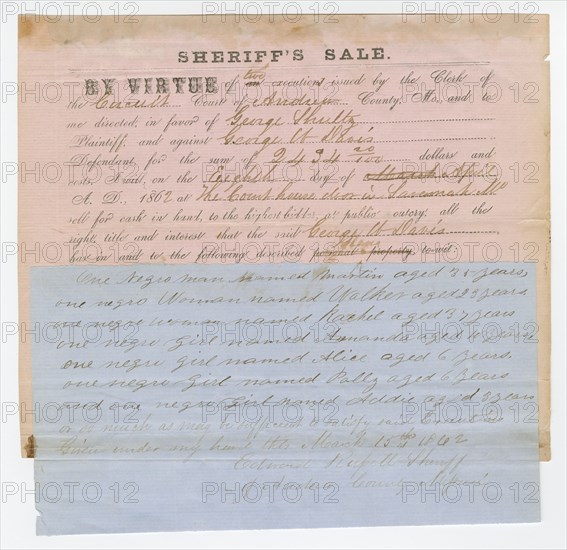 SHERIFF'S SALE.
BY VIRTUE of two an executions issued by the Clerk of
the Circuit Court of Andrew County, Mo., and to
me directed, in favor of George Shultz
Plaintiff, and against George W Davis
Defendant, for the sum of 2434 dollars and
costs, I will, on the Eighth day of March April
A. D., 1862 at The Court house door in Savannah Mo
sell for cash in hand, to the highest bidder, at public outcry, all the
right, title and interest that the said George W Davis
has in and to the following described personal property, to-wit
One Negro man named Martin aged years,
one negro Woman named Walker aged 25 years
one negro woman named Rachel aged 37 years
one negro girl named Amanda aged years
one negro girl named Alice aged 6 years,
one negro Girl named Polly aged 6 years
and one negro Girl named Addie aged 3 years
or so much as may be sufficient to satisfy said
Given under my hand this March 15th 1862
Sheriff
County
PHOTO 12